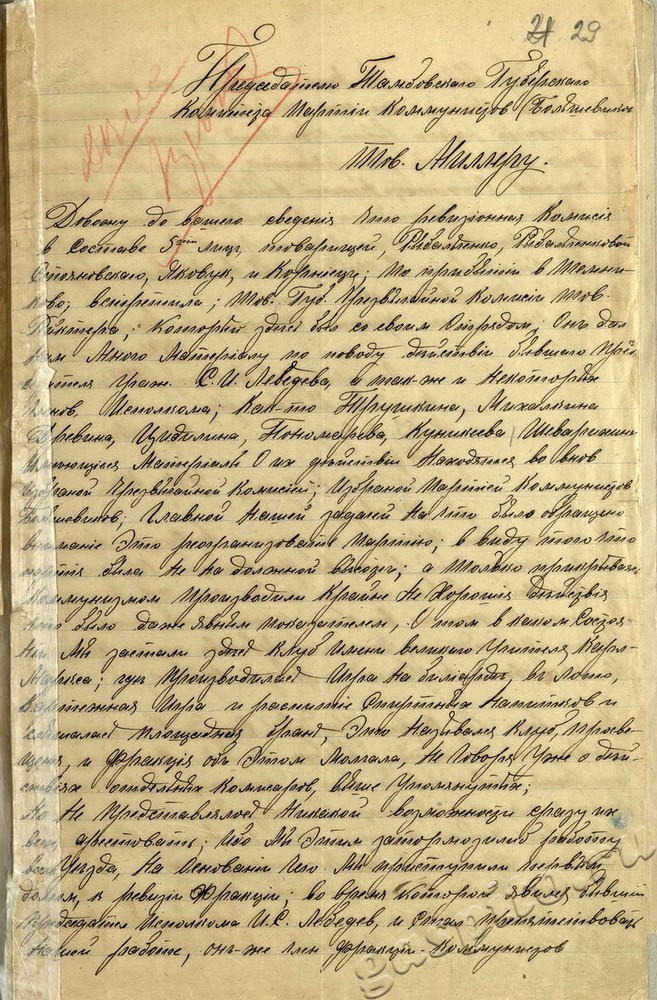 29
Председателю Тамбовскаго Губерскаго
Комитета Партіи Коммунистов (Большевиков
Тов. Миллеру.
Довожу до вашего сведения что ревизіонная Комисія
в Составе 5ти лиц, товарищей,
и Корнієц; По прибытіи в Темни-
ково; встретила; Тов. Губ. Чрезвычайной Комисіи Тов.
который здесь был со своим Отрядом; Он дал
нам много Матеріалу по поводу действій бывшаго Пред
С. И. Лебедева, а так-же и некоторых
Членов. Исполкома; Как-то Трушкина, Михалкина
Древина, Цидилина, Пономарева, Куникеева
Имеющиеся Матеріалы О их действіи находятся во внов
избраной Чрезвычайной Комисіи; Избраной Партіей Коммунистов
Большевиков; Главной Нашей задачей На что было обращено
внимание Это реорганизовать Партію; в виду того что
партія была не на должной высоте; а Только прикрываясь
Коммунизмом Производили Крайне Не Хорошия Действія
было даже явным показателем, О том в каком Состоя-
ніи Мы застали здесь Клуб Имени великого Учителя Карл-
Маркса; где Производилась Игра на билліарде, в лото,
Картежная Игра и распитие Спиртных Напитков и
слышалась площадная брань, Это Назывался Клуб, Просве-
щения, и Фракція объ Этом Молчала, Не Говоря Уже о дей-
ствіях отдельных Комисаров, выше Упомянутых;
Но Не Представлялось Никакой возможности сразу их
всех арестовать; Ибо Мы Этим затормозили б работу
всего Уезда, На Основаніи Чего Мы приступили первым
долгом, к ревизіи Фракціи; во время которой явился бывший
Председатель Исполкома И. С. Лебедев, и Стал препятствовать
Нашей работе, он-же член Фракціи-Коммунистов